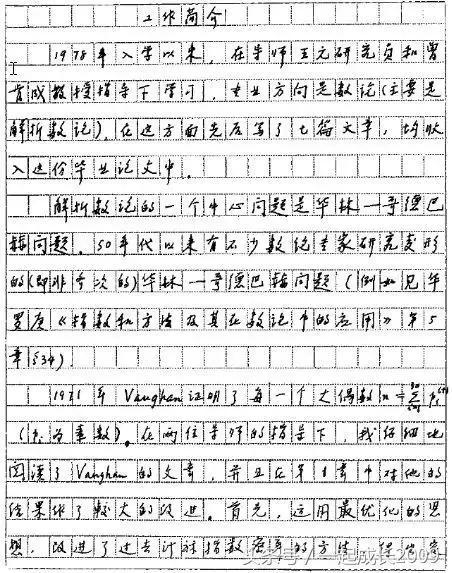 工作简介
1978年入学以来,在导师王元研究员和曾
肯成教授指导下学习,专业方向是数论(主要是
解析数论)。在这方面先后写了七篇文章,均收
入这份毕业论文中。
解析数论的一个中心问题是华林—哥德巴
赫问题。50年代以来有不少数论专家研究变形
的(即非等次的)华林—哥德巴赫问题(例如见华
罗庚《指数和方法及其在数论中的应用》第5
章§34)。
1971年Vaughan证明了每一个大偶数n=
(为素数)。在两位导师的指导下,我仔细地
阅读了Vaughan的文章,并且在第1章中对他的
结果作了较大的改进。首先,运用最优化的思
想,改进了过去计算指数密率的方法,
头条号/一起成长2009